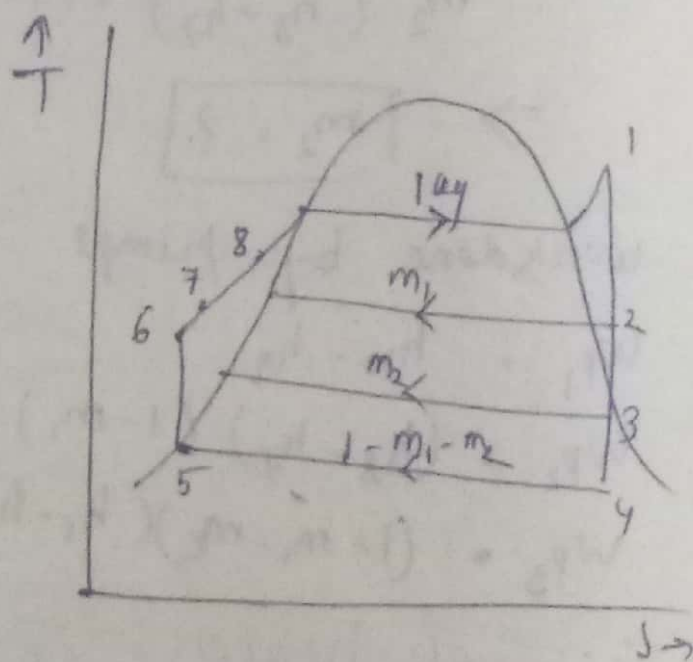 ↑
T
1
1 kg
8
m₁
7
2
6
m₂
3
1-m₁-m₂
5
4
s→